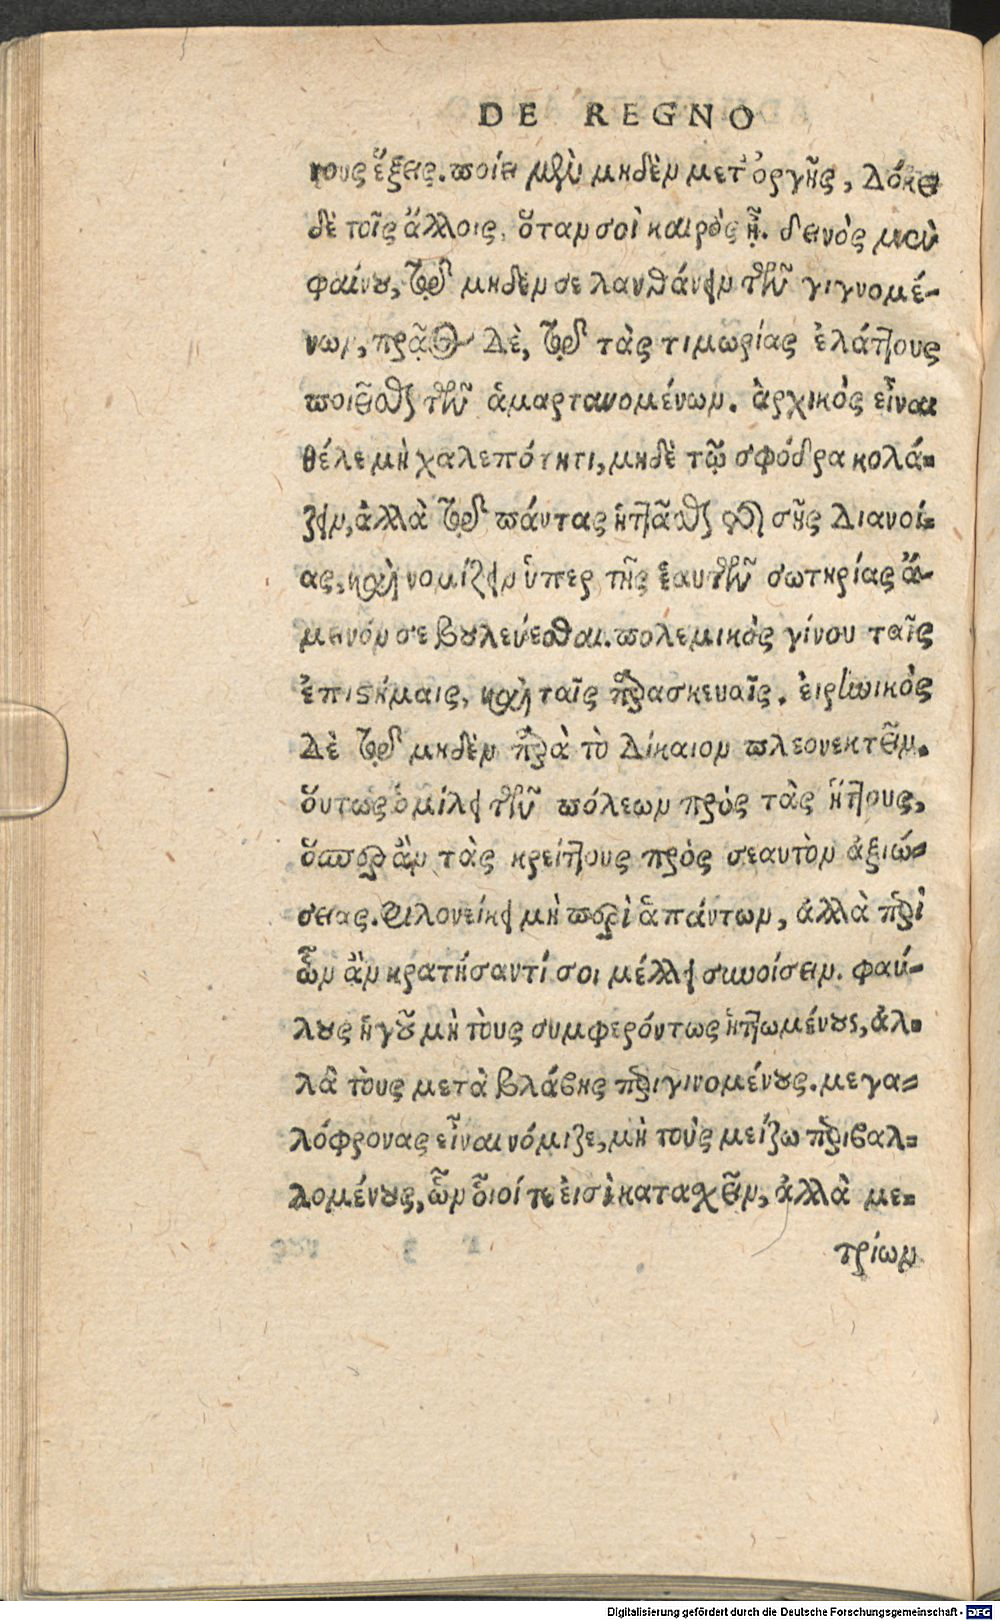 DE REGNO
νους ἕξεις. ποίει μὲν μηδὲν μετ᾽ ὀργῆς, δόκει
δὲ τοῖς ἄλλοις, ὅταν σοὶ καιρὸς ᾖ. δεινὸς μὲν
φαίνου, τῷ μηδέν σε λανθάνειν τῶν γιγνομέ-
νων, πρᾷος δὲ, τῷ τὰς τιμωρίας ἐλάττους
ποιεῖσθαι τῶν ἁμαρτανομένων. ἀρχικὸς εἶναι
θέλε μὴ χαλεπότητι, μηδὲ τῷ σφόδρα κολά-
ζειν, ἀλλὰ τῷ πάντας ἡττᾶσθαι τῆς σῆς διανοί-
ας, καὶ νομίζειν ὑπὲρ τῆς ἑαυτῶν σωτηρίας ἄ-
μεινόν σε βουλεύεσθαι. πολεμικὸς γίνου ταῖς
ἐπιστήμαις, καὶ ταῖς παρασκευαῖς. εἰρηνικὸς
δὲ τῷ μηδὲν παρὰ τὸ δίκαιον πλεονεκτεῖν.
ὅυτως ὁμίλει τῶν πόλεων πρὸς τὰς ἥττους,
ὅπωσπερ ἂν τὰς κρείττους πρὸς σεαυτὸν ἀξιώ-
σειας. Φιλονείκει μὴ περὶ ἁπάντων, ἀλλὰ περὶ
ὧν ἂν κρατήσαντί σοι μέλλει συνοίσειν. φαύ-
λους ἡγοῦ μὴ τοὺς συμφερόντως ἡττωμένους, ἀλ-
λὰ τοὺς μετὰ βλάβης περιγινομένους. μεγα-
λόφρονας εἶναι νόμιζε, μὴ τοὺς μείζω περιβαλ-
λομένους, ὧν οἷοί τε εἰσὶ κατασχεῖν, ἀλλὰ με-
τρίων
Digitalisierung gefördert durch die Deutsche Forschungsgemeinschaft - DFG